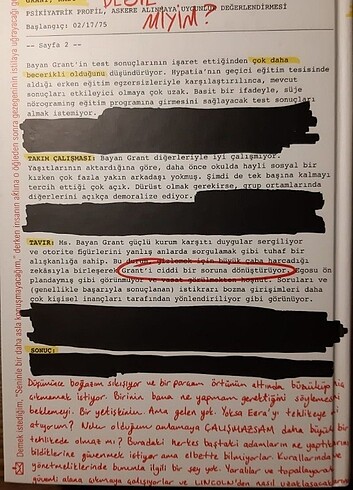 DEĞİL
MİYİM?
PSİKİYATRİK PROFİL, ASKERE ALINMAYA UYGUNLUK DEĞERLENDİRMESİ
Başlangıç: 02/17/75
-- Sayfa 2 --
Bayan Grant'in test sonuçlarının işaret ettiğinden çok daha
becerikli olduğunu düşündürüyor. Hypatia'nın geçici eğitim tesisinde
aldığı erken eğitim egzersizleriyle karşılaştırılınca, mevcut
sonuçları etkileyici olmaya çok uzak. Basit bir ifadeyle, süje
nörograming eğitim programına girmesini sağlayacak test sonuçları
almak istemiyor.
TAKIM ÇALIŞMASI: Bayan Grant diğerleriyle iyi çalışmıyor.
Yaşıtlarının aktardığına göre, daha önce okulda hayli sosyal bir
kızken çok fazla yakın arkadaşı yokmuş. Şimdi de tek başına kalmayı
tercih ettiği çok açık. Dürüst olmak gerekirse, grup ortamlarında
diğerlerini epikçe demoralize ediyor.
TAVIR: Ms. Bayan Grant güçlü kurum karşıtı duygular sergiliyor
ve otorite figürlerini yanlış anlarda sorgulamak gibi tuhaf bir
alışkanlığa sahip. Bu durum, gizlemek için büyük çaba harcadığı
zekâsıyla birleşerek Grant'i ciddi bir soruna dönüştürüyor. Egosu ön
plandaymış gibi görünmüyor ve vasat görülmekten hoşnut. Soruları ve
(genellikle başarıyla sonuçlanan) istikrarı bozma girişimleri daha
çok kişisel inançları tarafından yönlendiriliyor gibi görünüyor.
SONUÇ:
Düşününce boğazım sıkışıyor ve bir parçam örtünün altında büzüküp hiç
çıkmamak istiyor. Birinin bana ne yapmam gerektiğini söylemesini
beklemeyi. Bir yetişkinin. Ama gelen yok. Yoksa Ezra'yı tehlikeye mi
atıyorum? Neler olduğunu anlamaya ÇALIŞMAZSAM daha büyük bir
tehlikede olmaz mı? Buradaki herkes baştaki adamların ne yaptıklarını
bildiklerine güvenmek istiyor ama elbette bilmiyorlar. Kurallarında ve
yönetmeliklerinde bununla ilgili bir şey yok. Yaralılar ve toplayarak
güvenli alana çıkamaya çalışıyorlar ve LINCOLN'den nasıl uzaklaşacak
Demek istediğim, "Seninle bir daha asla konuşmayacağım," derken insanın aklına o öğleden sonra gezegeninin istilaya uğrayacağı